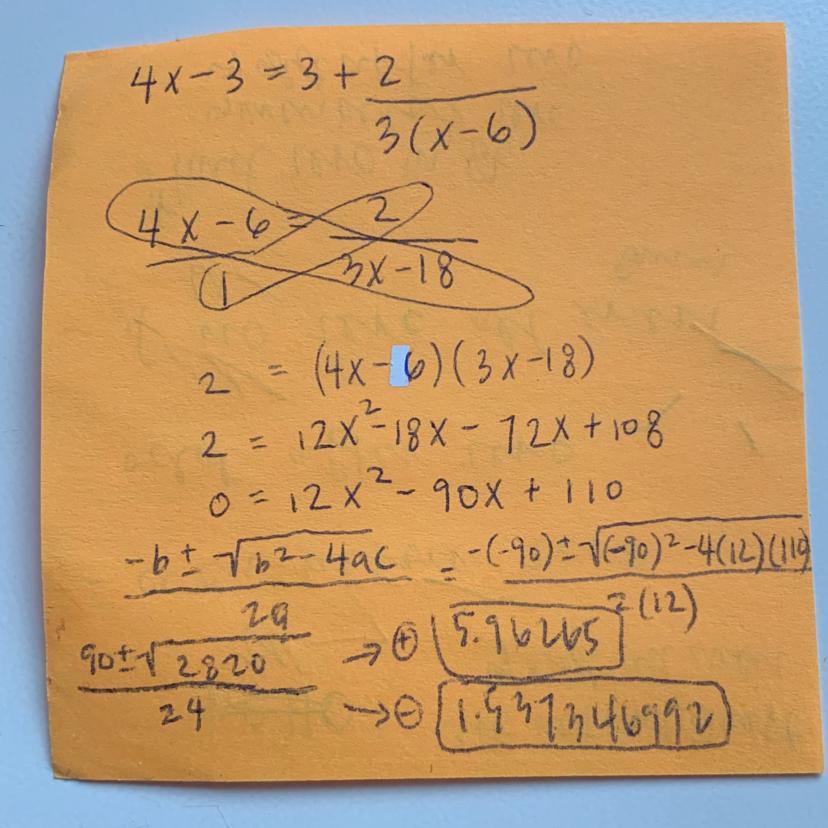 4x-3=3+2/3(x-6)
4x-6/1=2/3x-18
2=(4x-6)(3x-18)
2=12x²-18x-72x+108
0=12x²-90x+110
-b±√b²-4ac/2a=-(-90)±√(-90)²-4(12)(110/2(12)
90±√2820/24→⊕5.96265
→⊖1.537346992